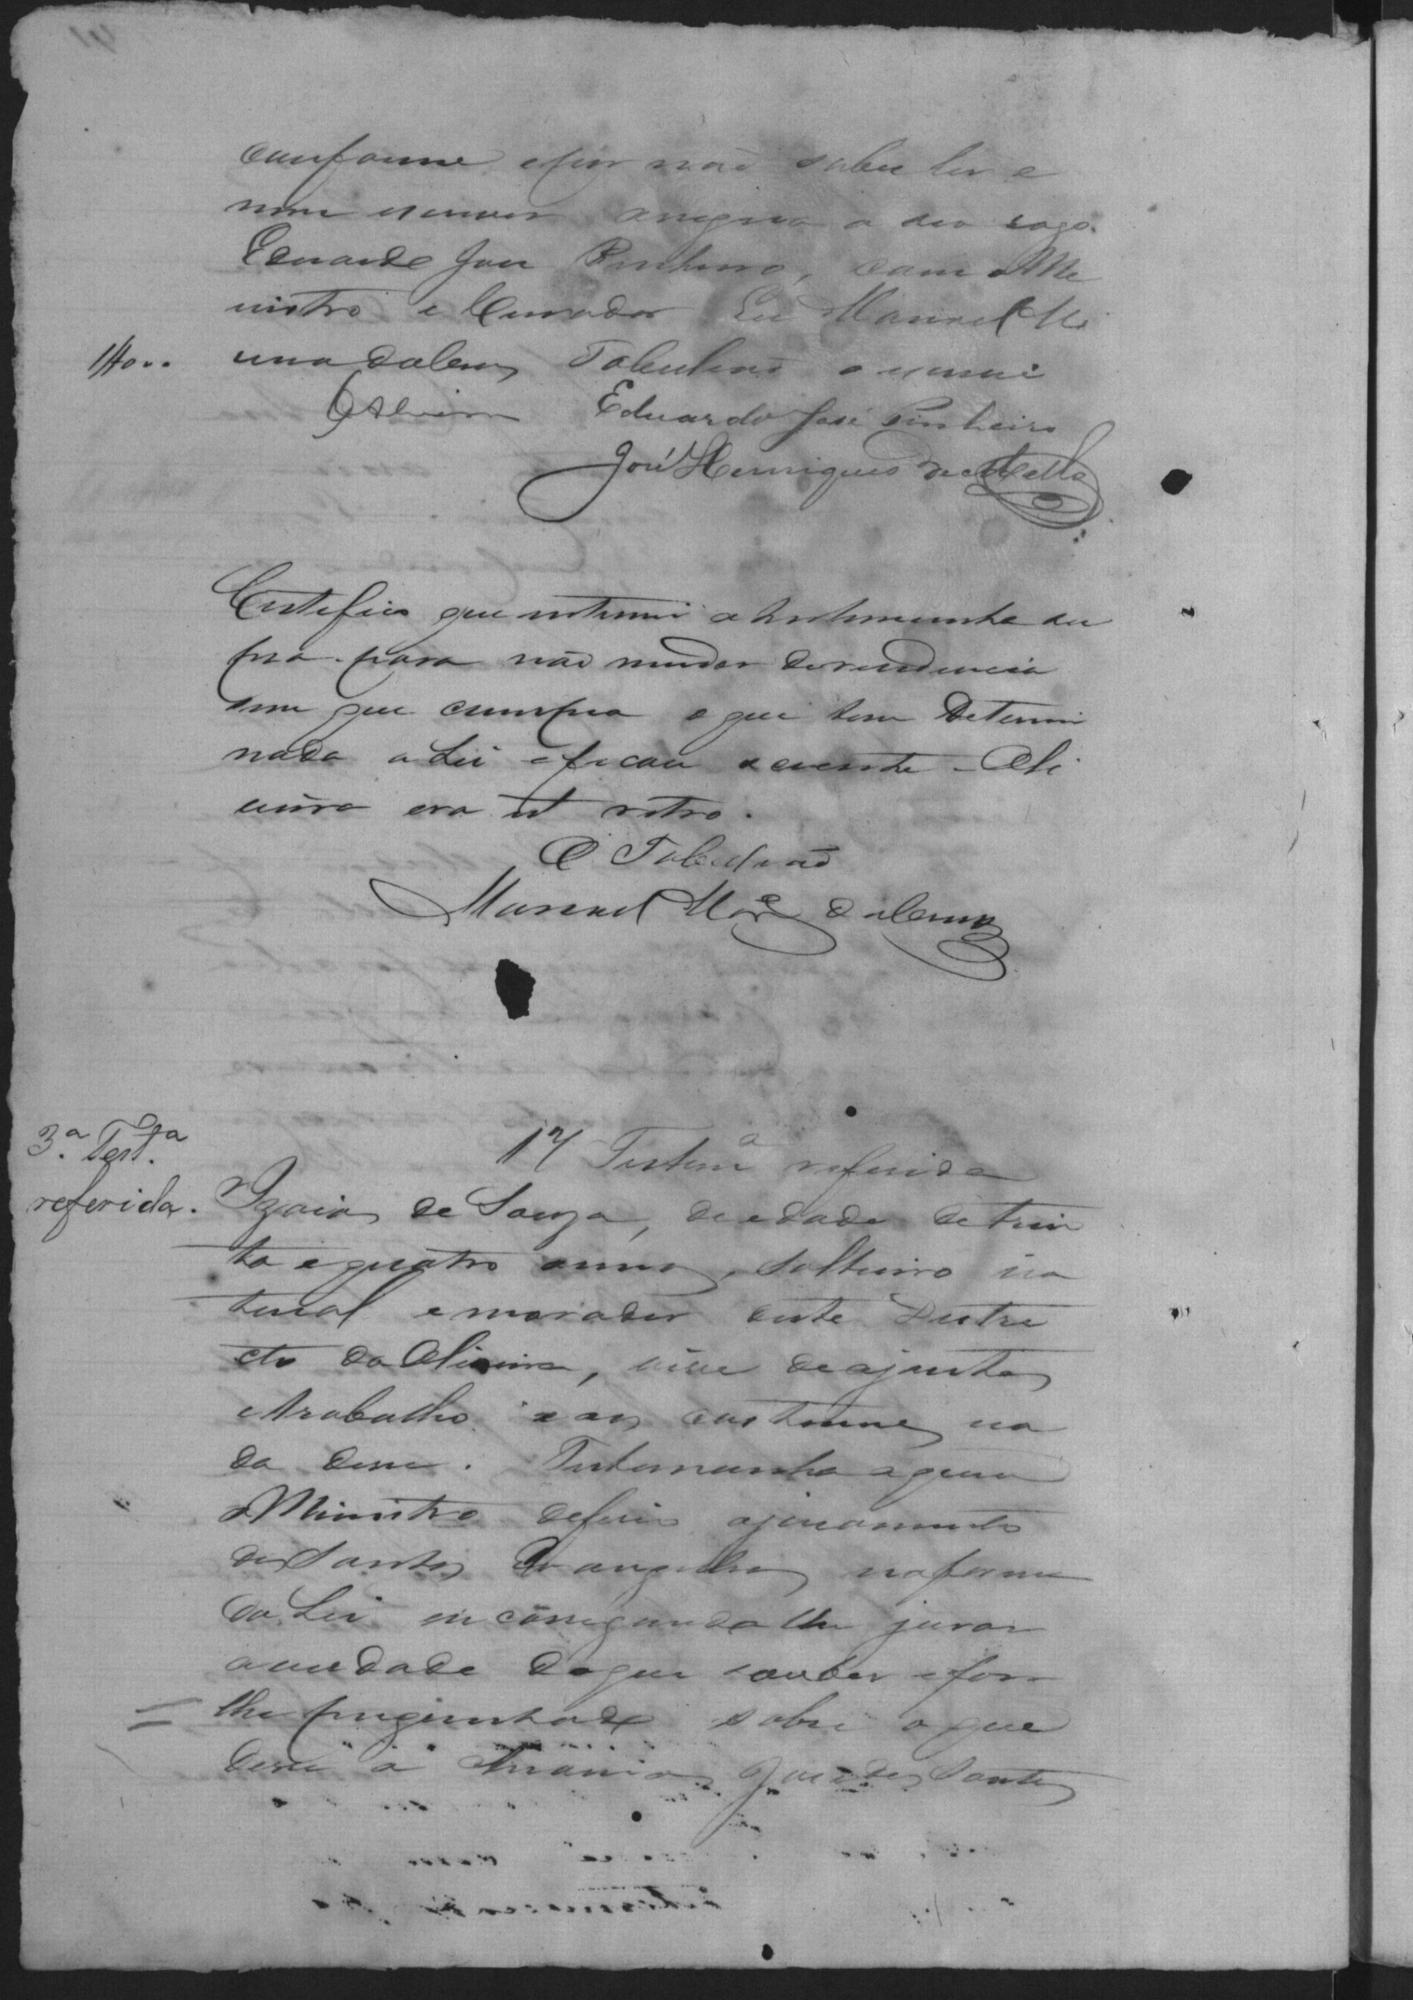 conforme e por não saber ler e
nem escrever assigna a seu rogo.
Eduardo José Pinheiro, com o Mi
nistro e Curador Eu Manoel
Tabelião o escrevi
Eduardo José Pinheiro
José Henriques de Mello
Certefico que intimei a testemunha su
pra para não mudar de residencia
sem que cumpra o que tem determi
nado a Lei e ficou sciente - Oli
veira era ut retro.
O Tabelião
Manoel
3.ª Test.ª
referida.
Testemª referida
Izaias de Souza, de edade de trin
ta e quatro annos, solteiro na
tural e morador neste Distri
cto da Oliveira, vive de ajustes
e trabalho e aos costumes na
da disse. Testemunha a quem
o Ministro deferio o juramento
dos Santos Evangelhos na forma
da Lei encarregando lhe jurar
a verdade do que souber e for
lhe preguntado sobre o que
disse a José dos Santos